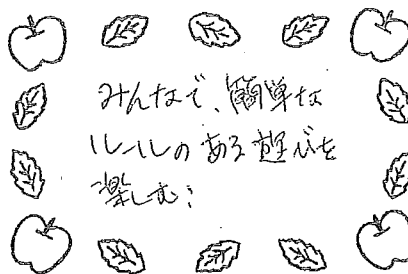 みんなで、簡単な
ルールのある遊びを
楽しむ: